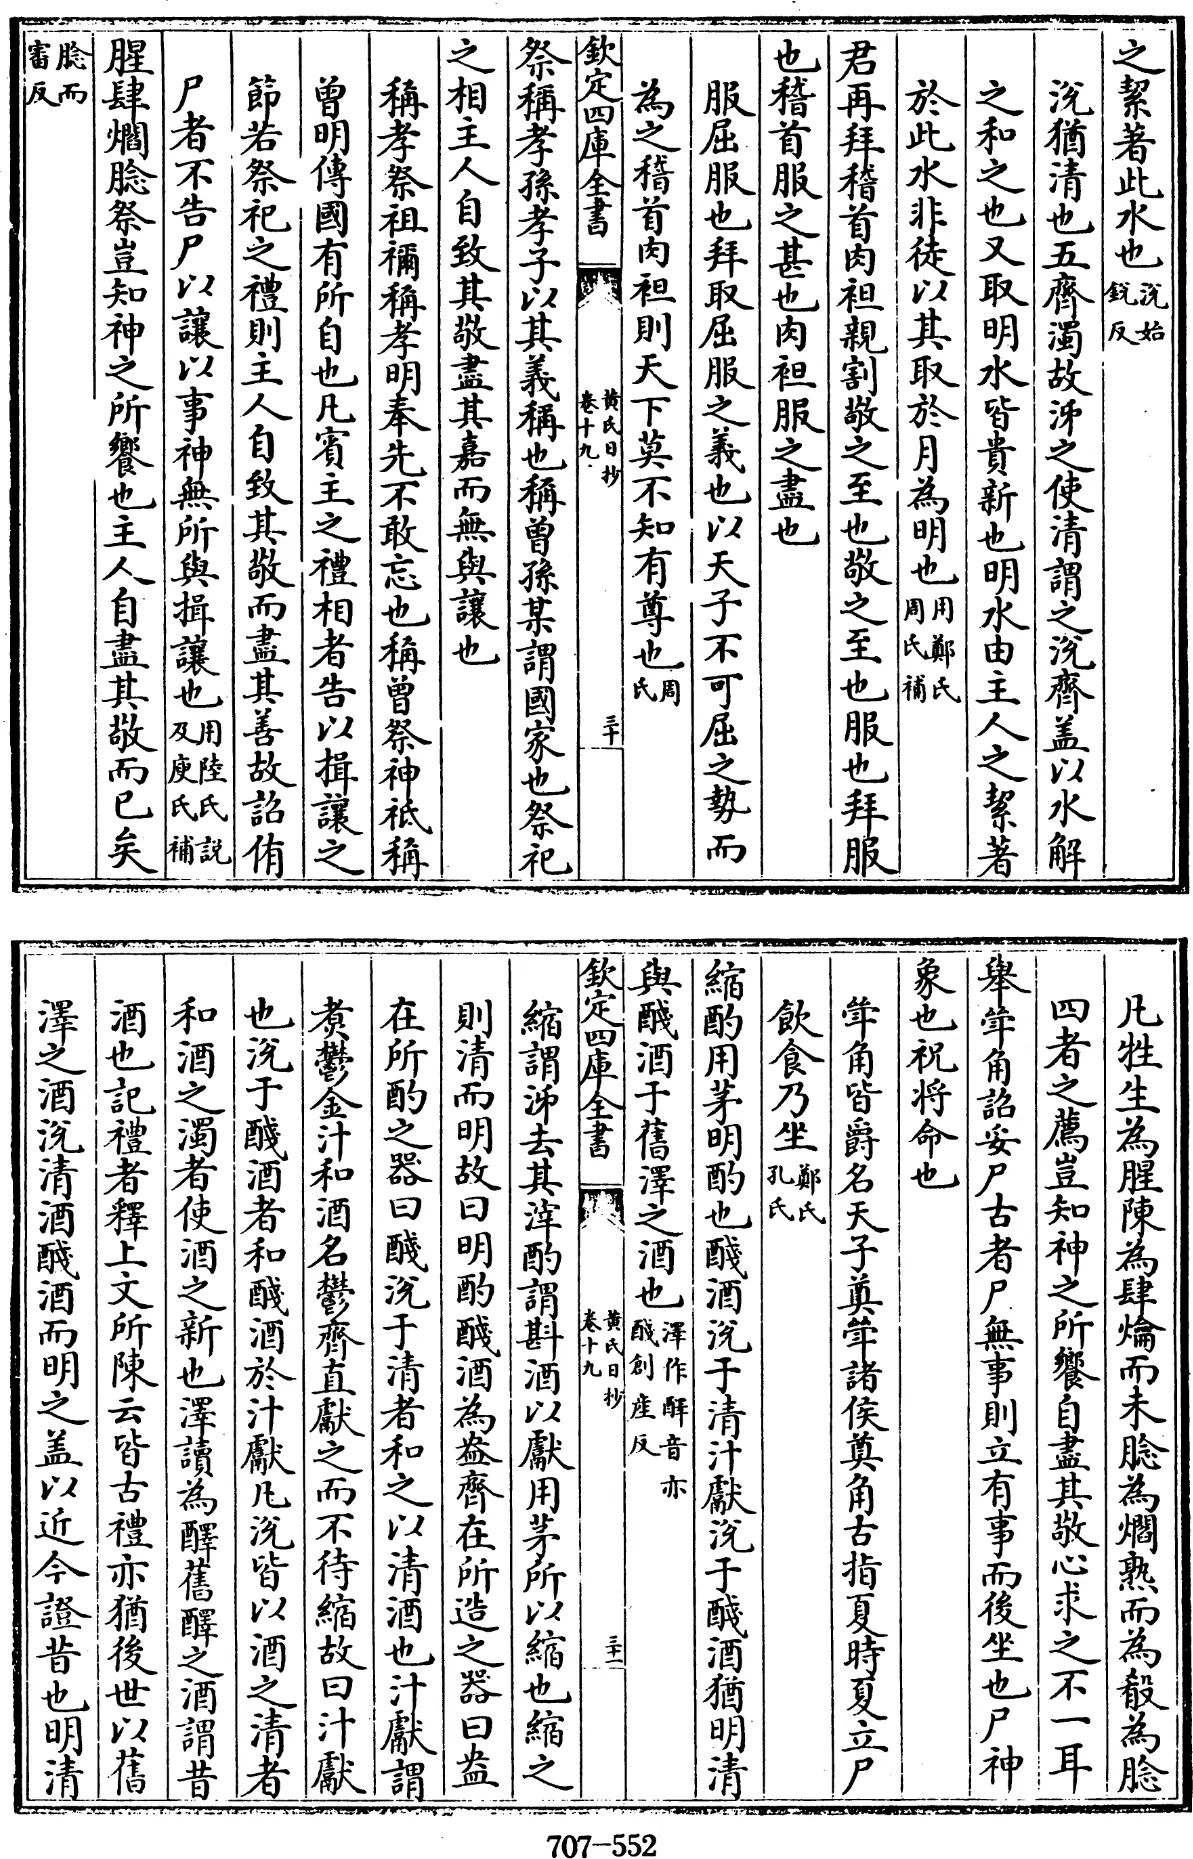 之絜著此水也涚始銳反
涚猶清也五齊濁故泲之使清謂之涚齊盖以水解
之和之也又取明水皆貴新也明水由主人之絜著
於此水非徒以其取於月為明也用鄭氏周氏補
君再拜稽首肉袒親割敬之至也敬之至也服也拜服
也稽首服之甚也肉袒服之盡也
服屈服也拜取屈服之義也以天子不可屈之勢而
為之稽首肉袒則天下莫不知有尊也周氏
欽定四庫全書 黃氏日抄卷十九 三十
祭稱孝孫孝子以其義稱也稱曾孫某謂國家也祭祀
之相主人自致其敬盡其嘉而無與讓也
稱孝祭祖禰稱孝明奉先不敢忘也稱曾祭神祗稱
曾明傳國有所自也凡賓主之禮相者告以揖讓之
節若祭祀之禮則主人自致其敬而盡其善故詔侑
尸者不告尸以讓以事神無所與揖讓也用陸氏說及庾氏補
腥肆爓腍祭豈知神之所饗也主人自盡其敬而已矣
腍而審反
凡牲生為腥陳為肆爚而未腍為爓熟而為殽為腍
四者之薦豈知神之所饗自盡其敬心求之不一耳
舉斝角詔妥尸古者尸無事則立有事而後坐也尸神
象也祝將命也
斝角皆爵名天子奠斝諸侯奠角古指夏時夏立尸
飲食乃坐鄭氏孔氏
縮酌用茅明酌也醆酒涚于清汁獻涚于醆酒猶明清
與醆酒于舊澤之酒也澤作醳音亦醆創産反
欽定四庫全書 黃氏日抄卷十九 三十一
縮謂泲去其滓酌謂斟酒以獻用茅所以縮也縮之
則清而明故曰明酌醆酒為盎齊在所造之器曰盎
在所酌之器曰醆涚于清者和之以清酒也汁獻謂
煑鬱金汁和酒名鬱齊直獻之而不待縮故曰汁獻
也涚于醆酒者和醆酒於汁獻凡涚皆以酒之清者
和酒之濁者使酒之新也澤讀為醳舊醳之酒謂昔
酒也記禮者釋上文所陳云皆古禮亦猶後世以舊
澤之酒涚清酒醆酒而明之盖以近今證昔也明清
707—552